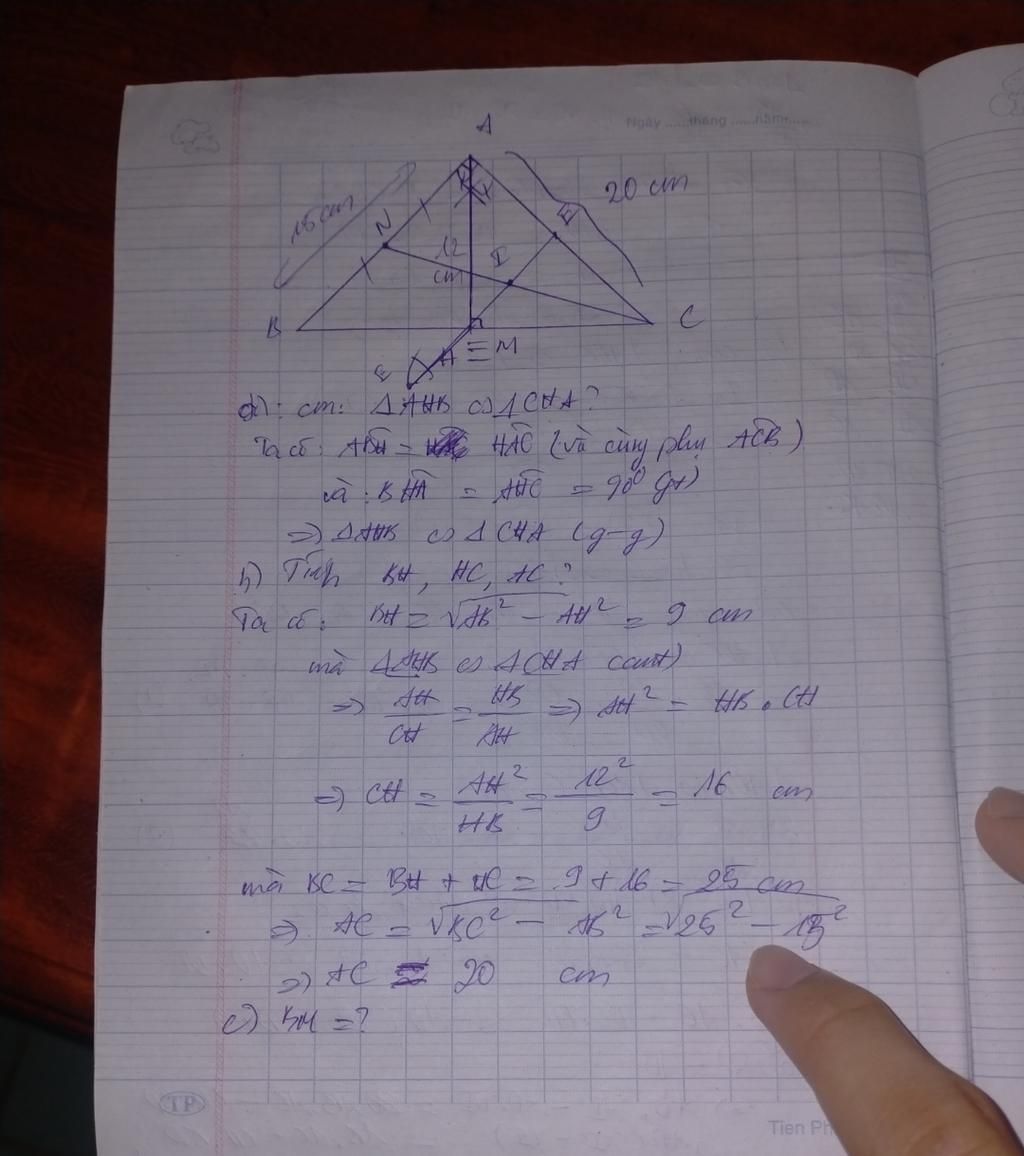 Ngày ......tháng ......năm......
A
20 cm
15 cm
N
12
cm
I
B
C
H ≡ M
E
a): cm: ΔAHB ∽ ΔCHA?
Ta có: ABH = HAC (và cùng phụ ACB)
và: BHA = AHC = 90° (gt)
=> ΔAHB ∽ ΔCHA (g-g)
b) Tính BH, HC, AC?
Ta có: BH = √AB² - AH² = 9 cm
mà ΔAHB ∽ ΔCHA (cmt)
=> AH/CH = HB/AH => AH² = HB . CH
=> CH = AH²/HB = 12²/9 = 16 cm
mà BC = BH + HC = 9 + 16 = 25 cm
=> AC = √BC² - AB² = √25² - 15²
=> AC = 20 cm
c) BM = ?
TP
Tien Ph